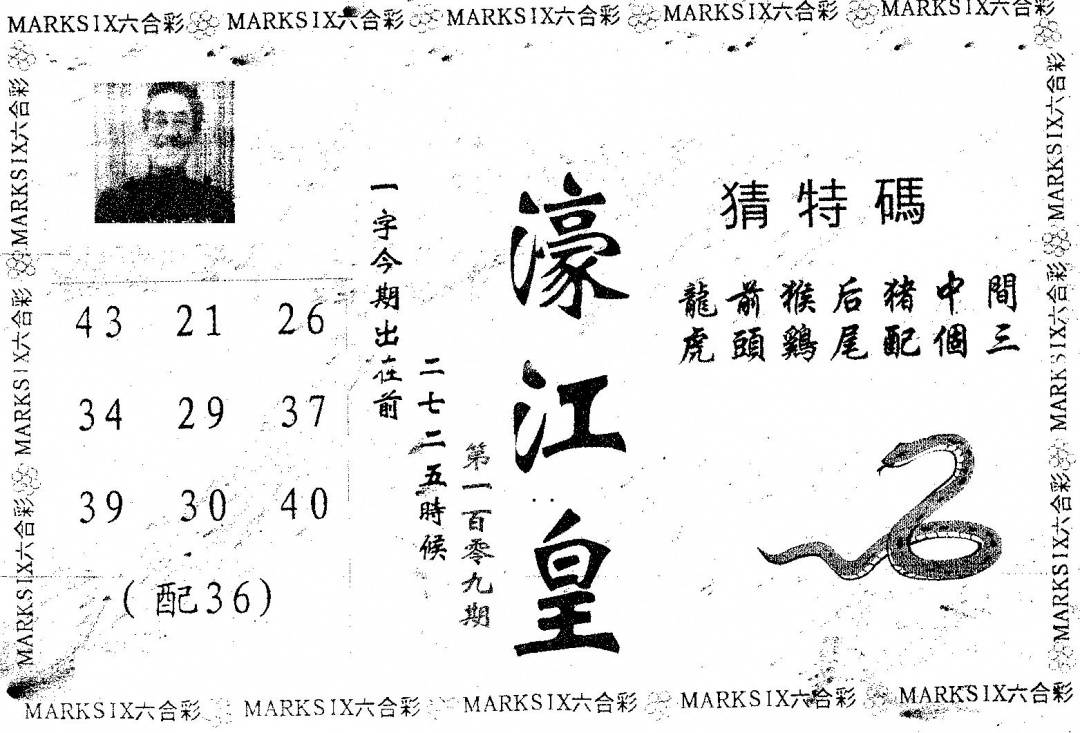 MARKSIX六合彩 MARKSIX六合彩 MARKSIX六合彩 MARKSIX六合彩 MARKSIX六合彩
MARKSIX六合彩 MARKSIX六合彩 MARKSIX六合彩
43 21 26
34 29 37
39 30 40
(配36)
一字今期出在前
二七二五時候
第一百零九期
濠江皇
猜特碼
龍前猴后猪中間
虎頭鷄尾配個三
MARKSIX六合彩 MARKSIX六合彩 MARKSIX六合彩
MARKSIX六合彩 MARKSIX六合彩 MARKSIX六合彩 MARKSIX六合彩 MARKSIX六合彩